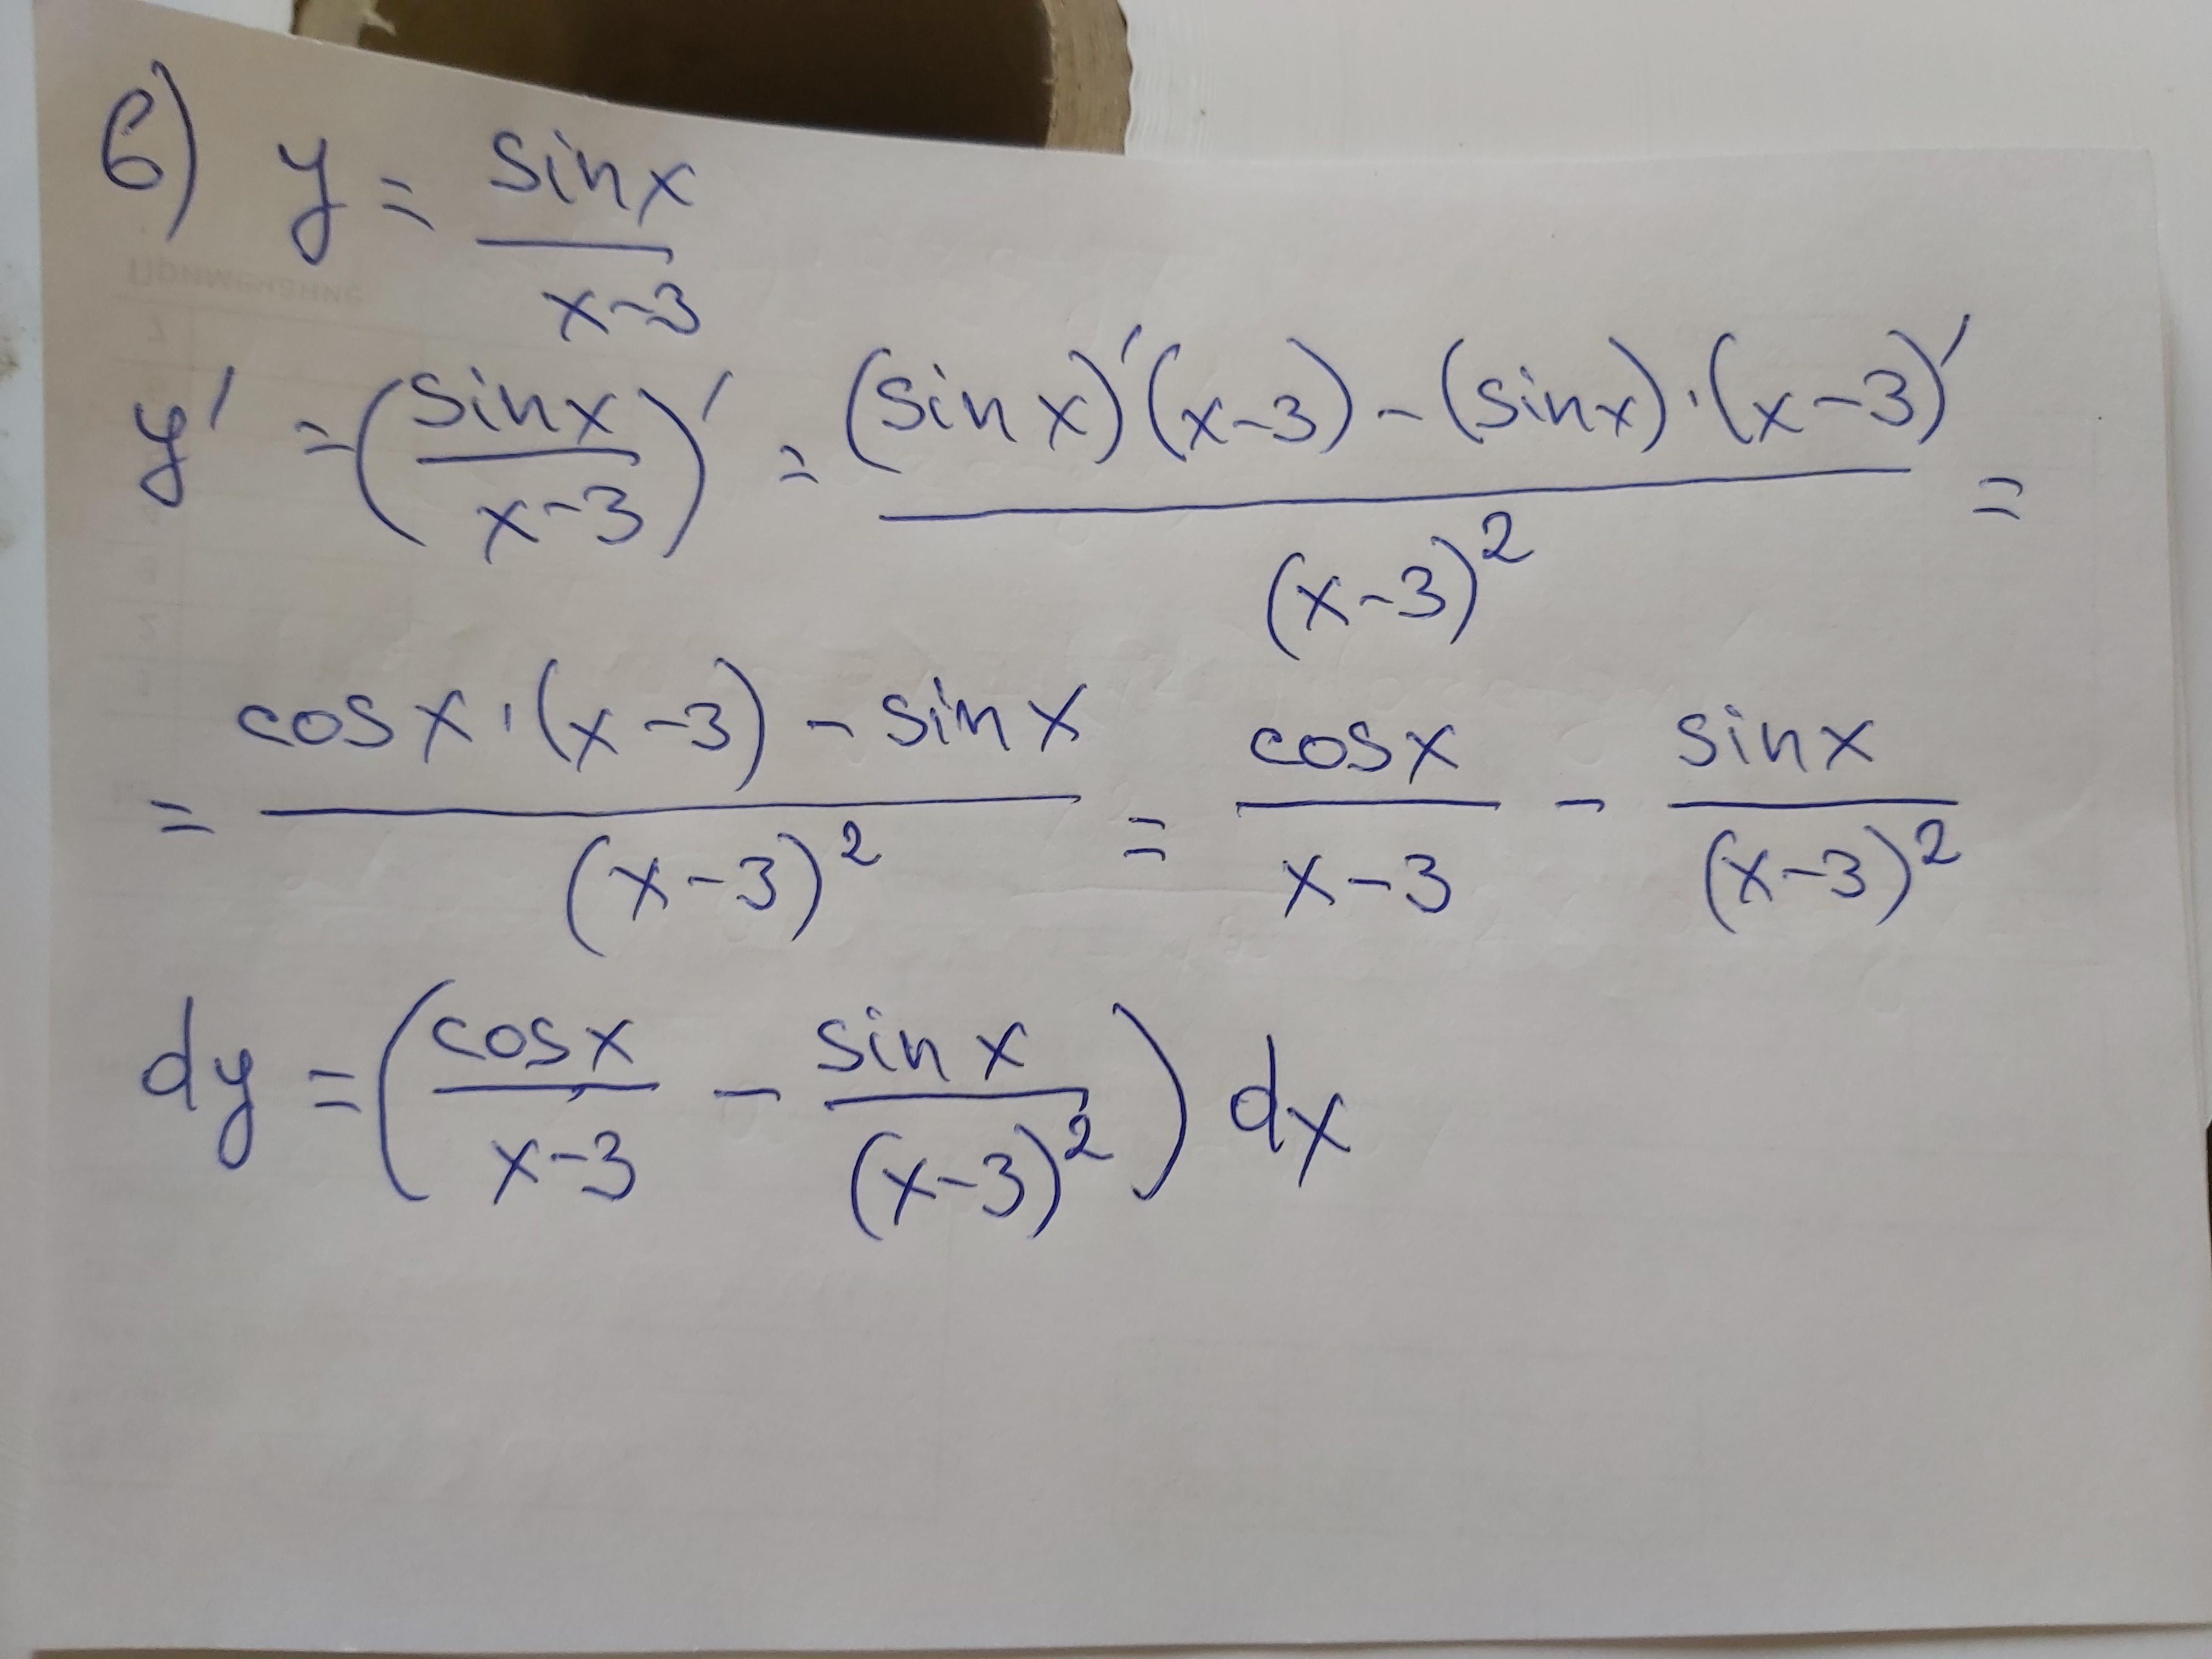 б) y = sinx / x-3
y' = (sinx / x-3)' = (sin x)'(x-3) - (sinx)·(x-3)' / (x-3)² =
= cosx·(x-3) - sinx / (x-3)² = cosx / x-3 - sinx / (x-3)²
dy = (cosx / x-3 - sinx / (x-3)²) dx
Примечание